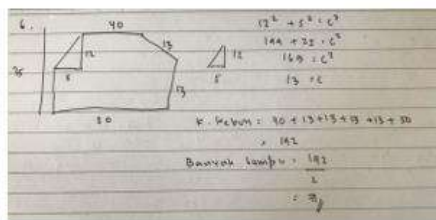 6.
40
12
13
5
13
12
5
12² + 5² = c²
144 + 25 = c²
169 = c²
13 = c
K. kebun = 40 + 13 + 13 + 13 + 13 + 50
= 192
Banyak lampu = 192
2
=